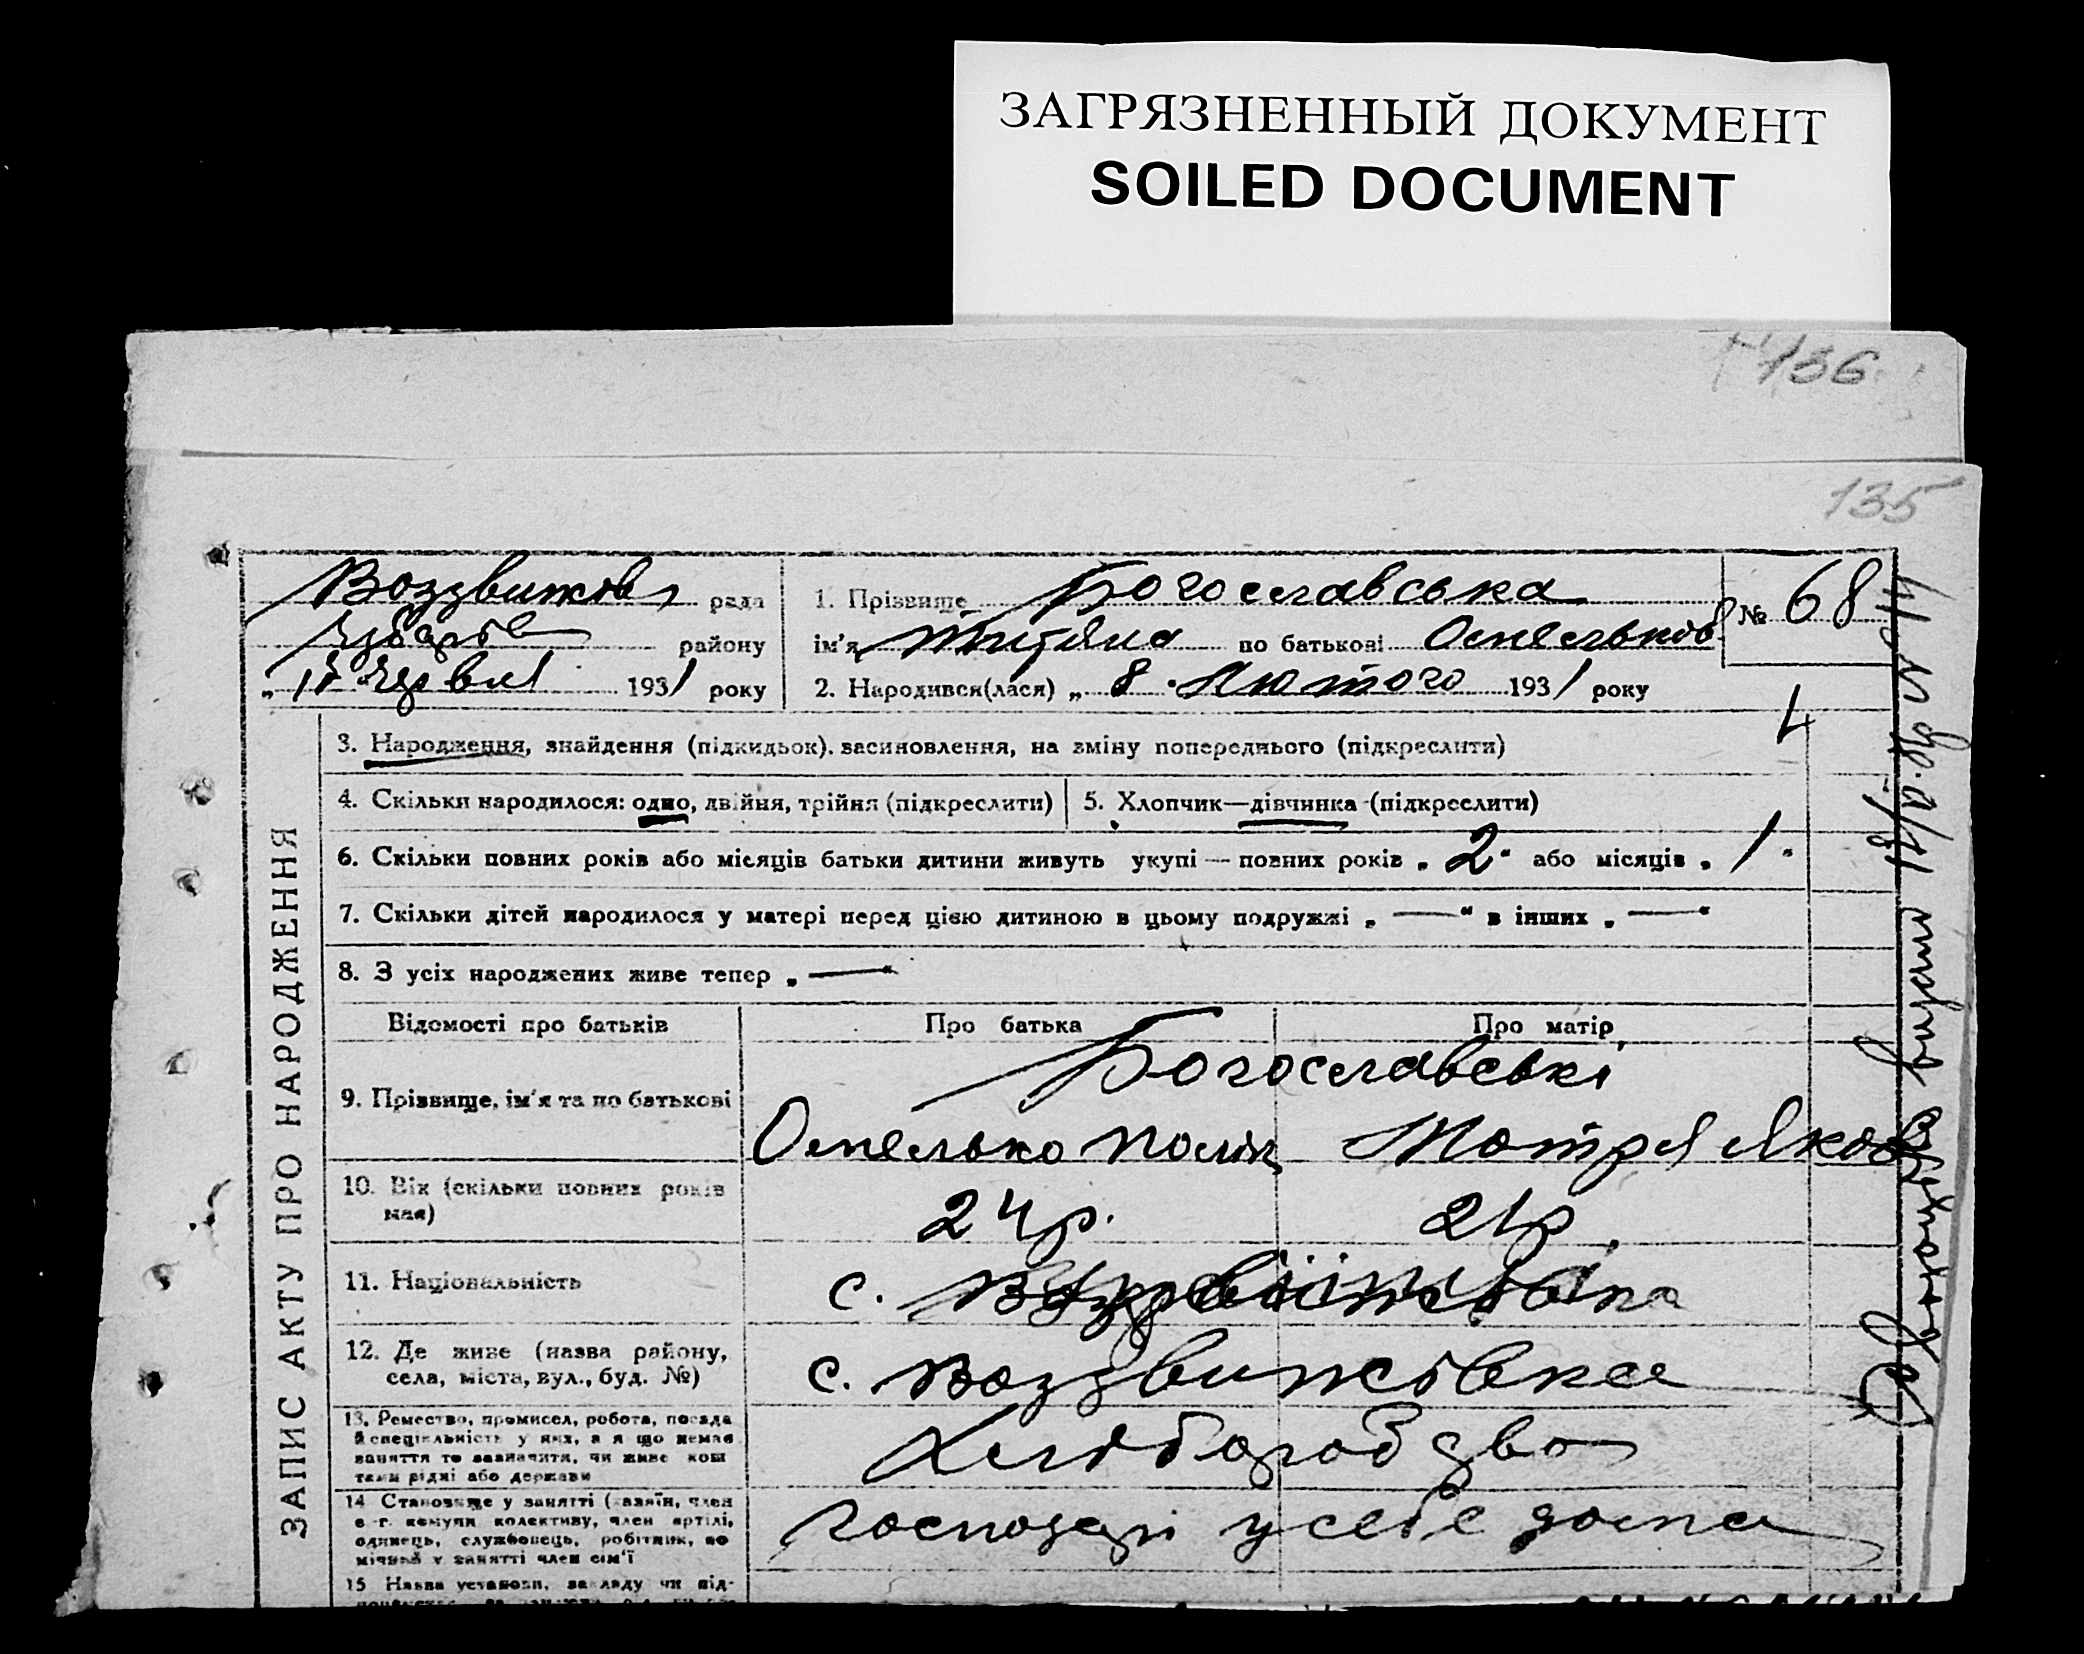 ЗАГРЯЗНЕННЫЙ ДОКУМЕНТ
SOILED DOCUMENT
136
135
рада
району
1931 року
1. Прізвище Богославська
ім'я по батькові Омельков
2. Народився(лася) „ 8 Лютого 1931 року
№ 68
ЗАПИС АКТУ ПРО НАРОДЖЕННЯ
3. Народження, знайдення (підкидьок), засиновлення, на зміну попереднього (підкреслити)
4. Скільки народилося: одно, двійня, трійня (підкреслити) 5. Хлопчик—дівчинка (підкреслити)
6. Скільки повних років або місяців батьки дитини живуть укупі — повних років „ 2 “ або місяців „ 1 “
7. Скільки дітей народилося у матері перед цією дитиною в цьому подружжі „ — “ в інших „ — “
8. З усіх народжених живе тепер „ — “
Відомості про батьків Про батька Про матір
9. Прізвище, ім'я та по батькові Богославські
Омелько Мотря Яков
10. Вік (скільки повних років має) 24 р. 21 р.
11. Національність с.
12. Де живе (назва району, села, міста, вул., буд. №) с. Воздвижівка
13. Ремество, промисел, робота, посада
й спеціяльність у них, а якщо немає
заняття то зазначити, чи живе кош
тами рідні або держави
Хліборобство
14 Становище у занятті (хазяїн, член
с.-г. комуни колективу, член артілі,
одинець, службовець, робітник, по
мічний у занятті член сім'ї
господарі у себе дома
15 Назва установи, закладу чи під-